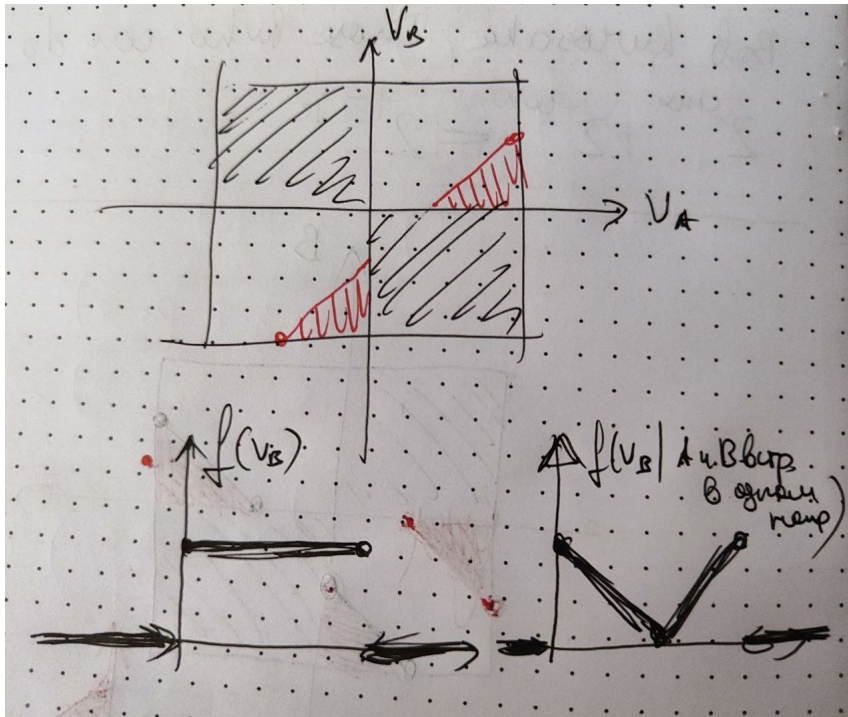 V_B
V_A
f(V_B)
f(V_B | A и B встр
в одном
напр)